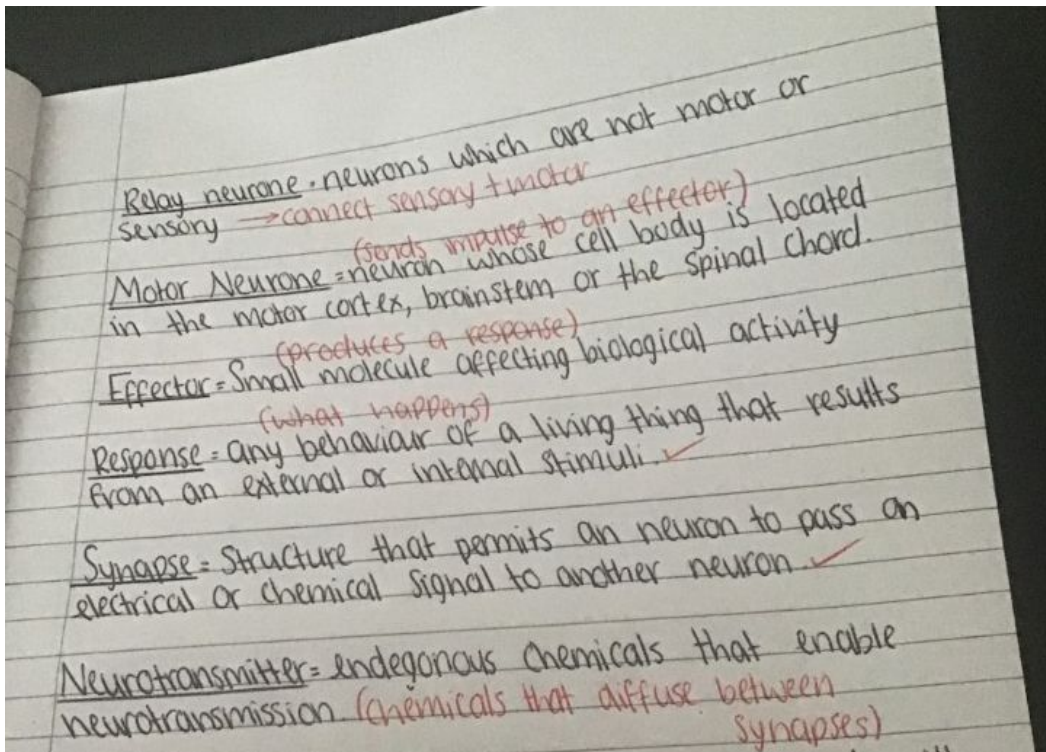 Relay neurone. neurons which are not motor or
sensory → connect sensory + motor
(sends impulse to an effector)
Motor Neurone = neuron whose cell body is located
in the motor cortex, brainstem or the spinal chord.
(produces a response)
Effector = Small molecule affecting biological activity
(what happens)
Response = any behaviour of a living thing that results
from an external or internal stimuli. ✓
Synapse = Structure that permits an neuron to pass an
electrical or chemical signal to another neuron ✓
Neurotransmitter = endegonous chemicals that enable
neurotransmission (chemicals that diffuse between
synapses)